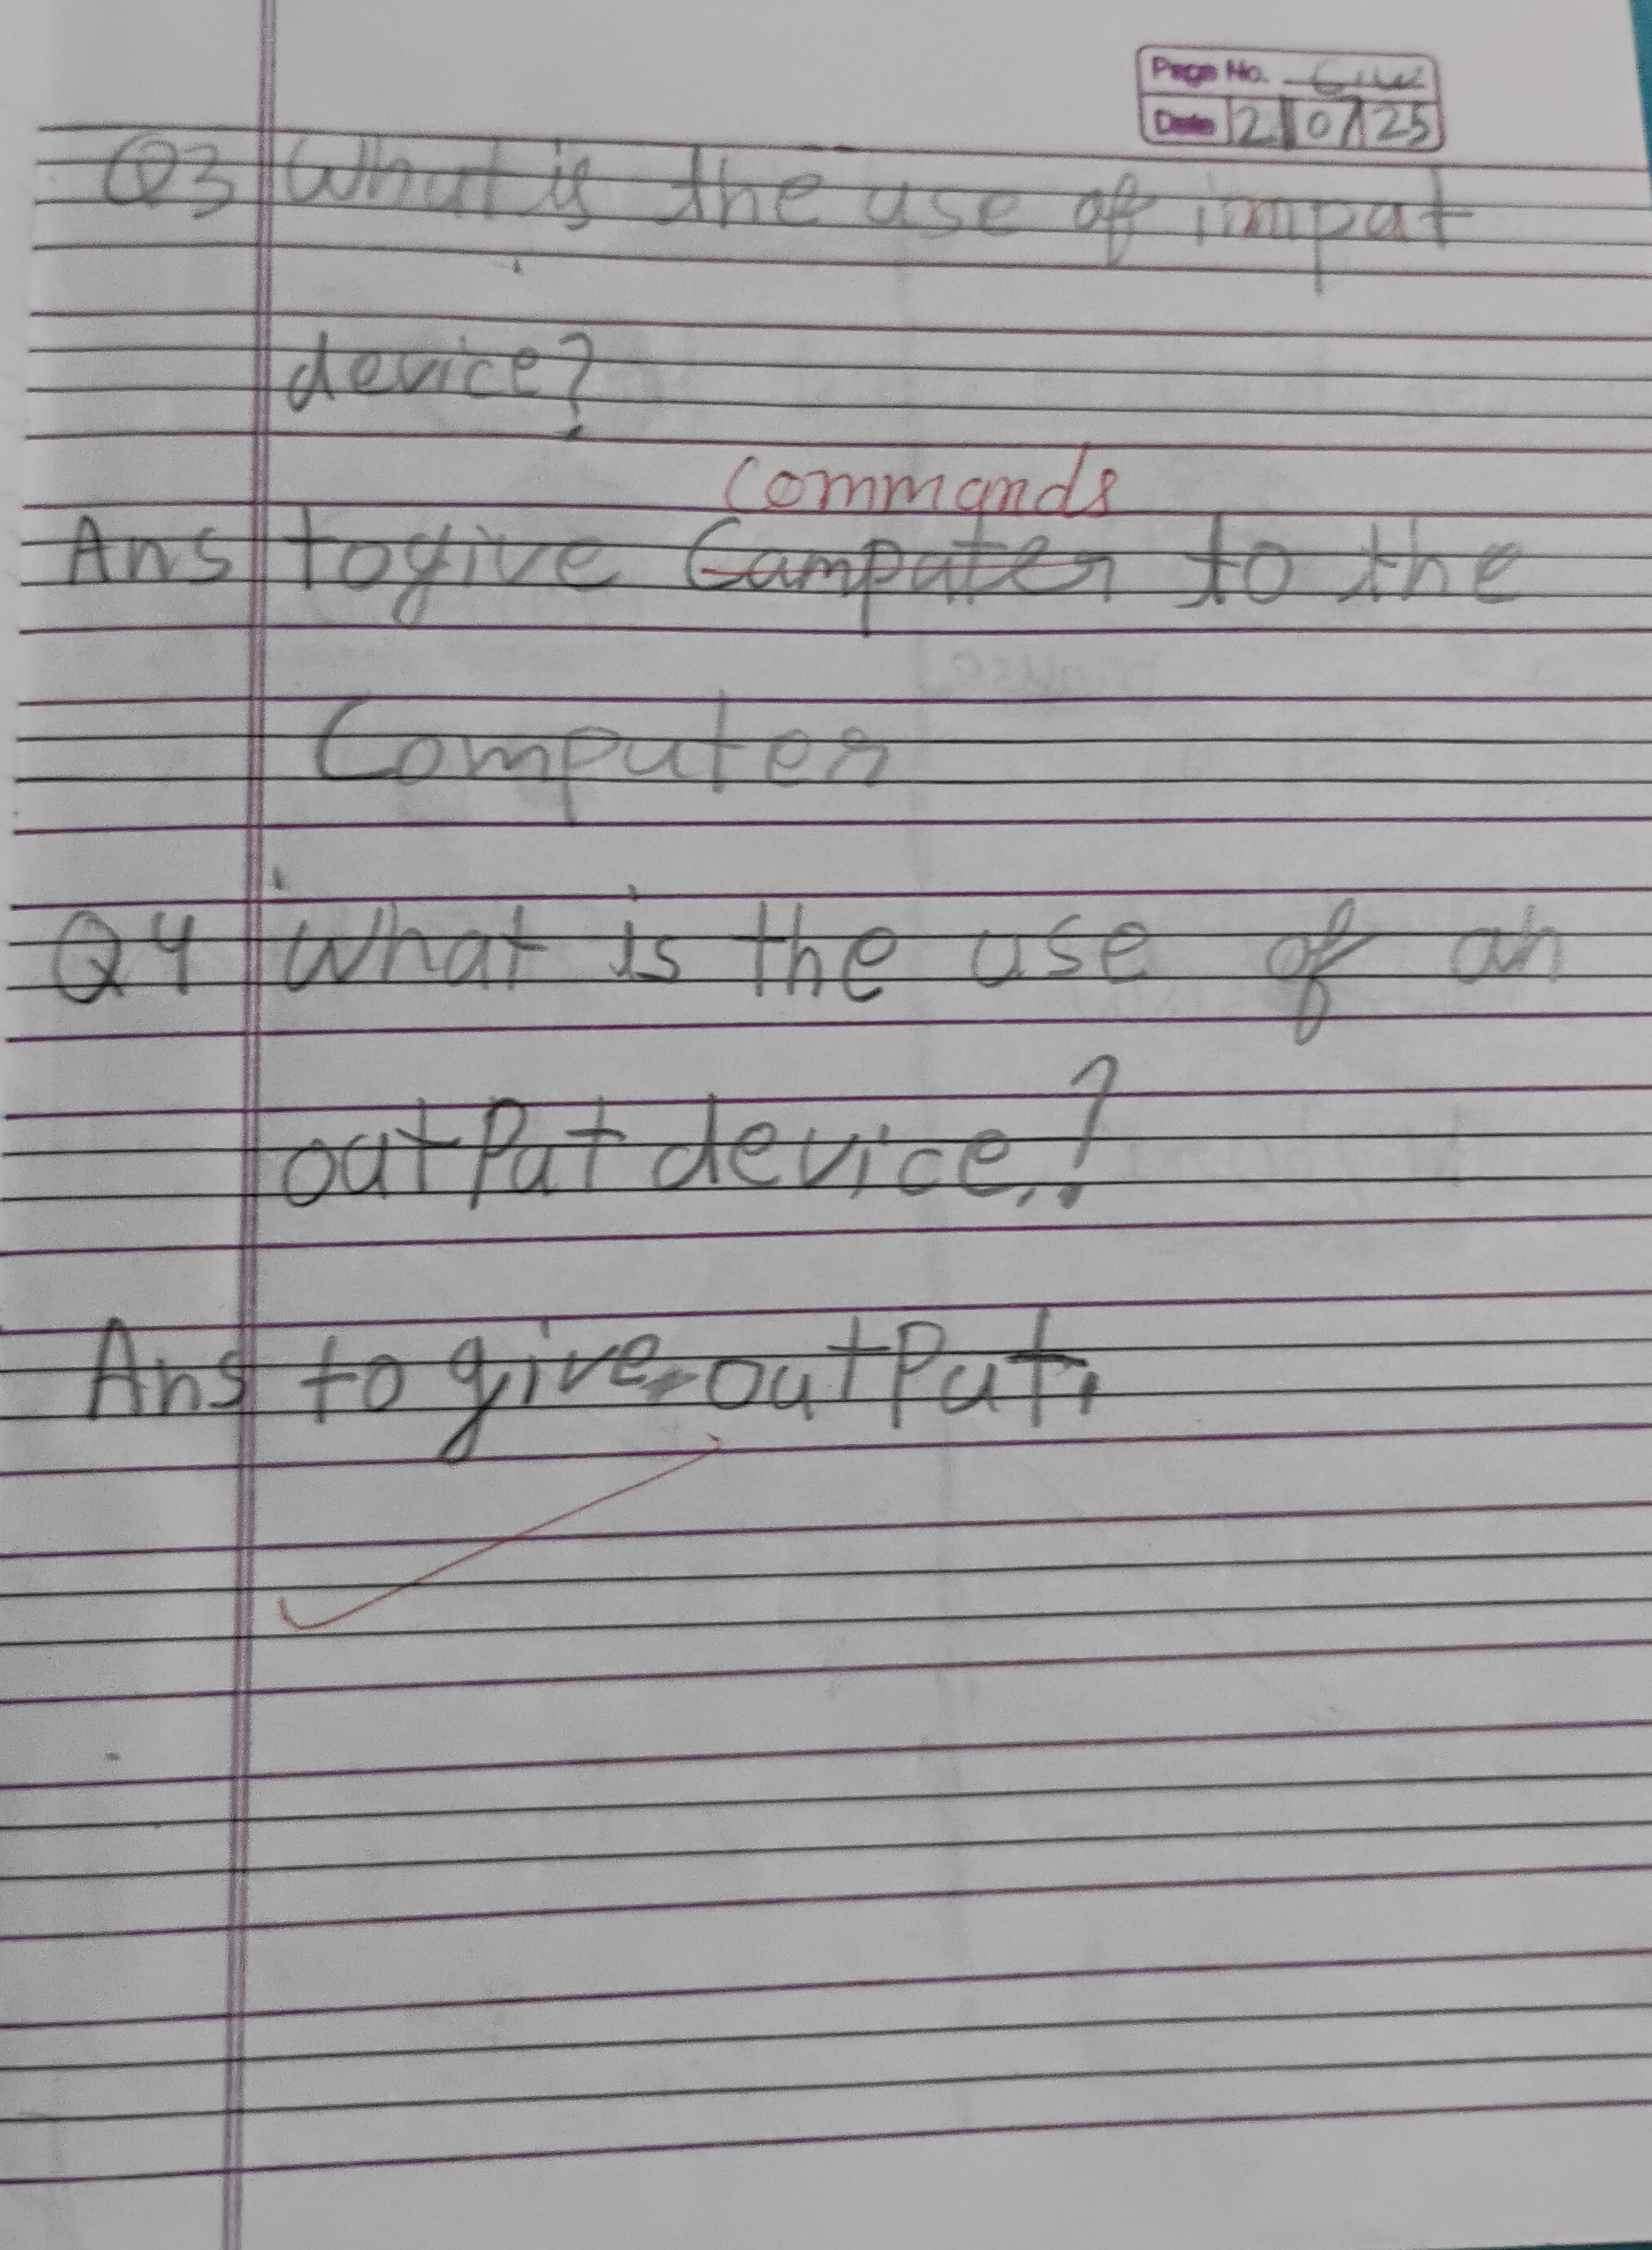 Page No. C.W
Date 2 07 25
Q3 What is the use of impat
device?
commands
Ans to give Campater to the
Computer
Q4 What is the use of an
outPut device?
Ans to give outPut.